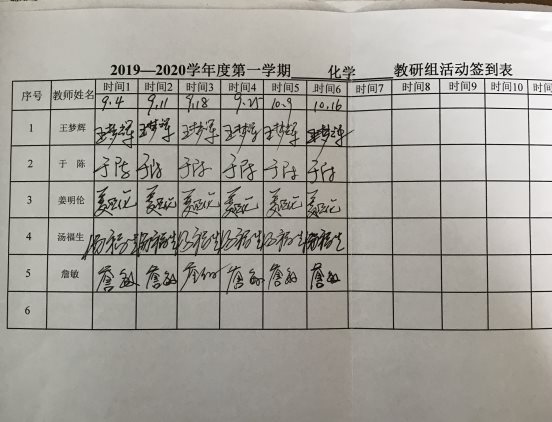 2019—2020学年度第一学期 化学 教研组活动签到表
序号 教师姓名 时间1 时间2 时间3 时间4 时间5 时间6 时间7 时间8 时间9 时间10
9.4 9.11 9.18 9.25 10.9 10.16
1 王梦辉 王梦辉 王梦辉 王梦辉 王梦辉 王梦辉 王梦辉
2 于 陈 于陈 于陈 于陈 于陈 于陈 于陈
3 姜明伦 姜明伦 姜明伦 姜明伦 姜明伦 姜明伦 姜明伦
4 汤福生 汤福生 汤福生 汤福生 汤福生 汤福生 汤福生
5 詹敏 詹敏 詹敏 詹敏 詹敏 詹敏 詹敏
6